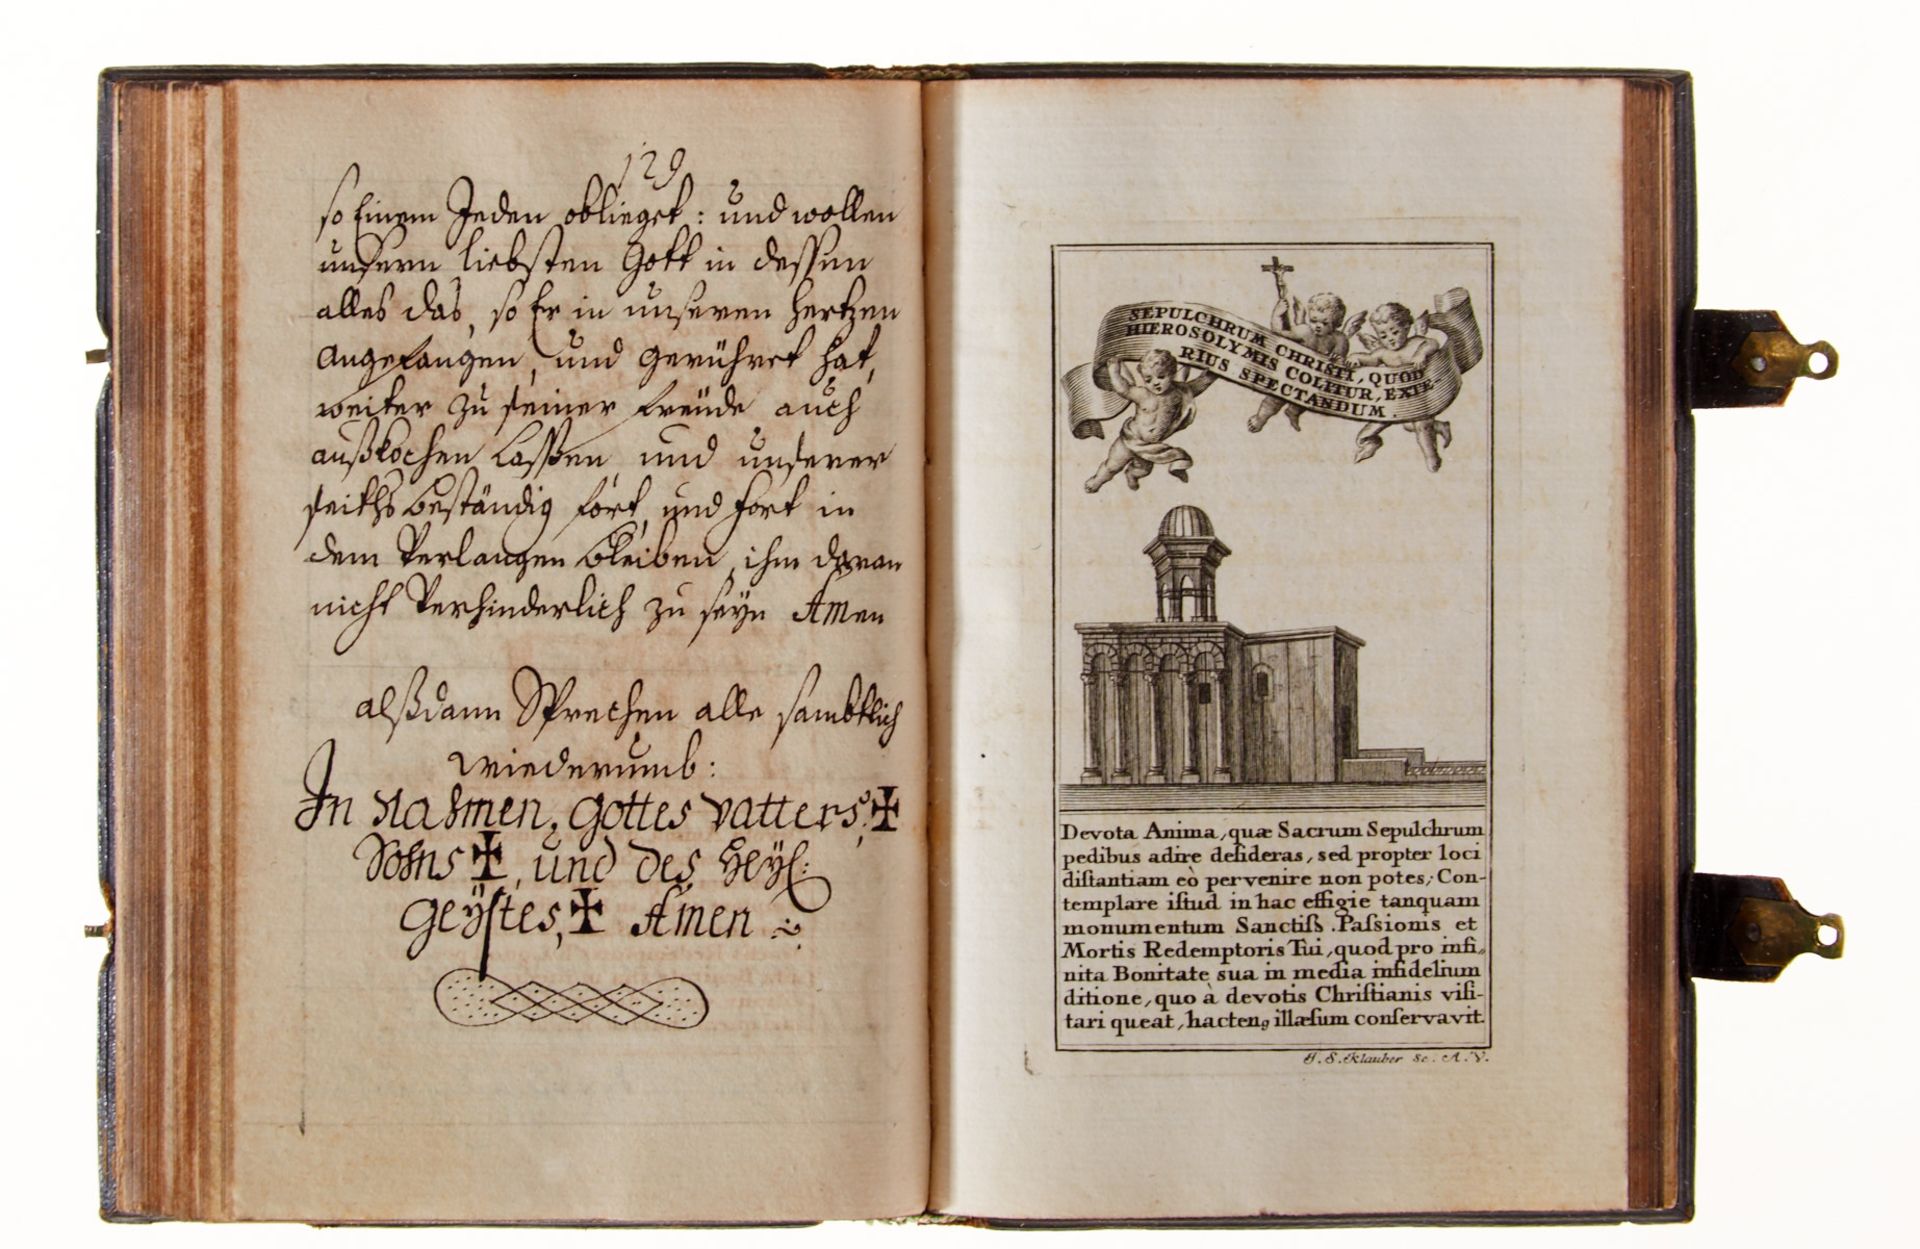 129
so Einem Jeden oblieget: und wollen
unsern liebsten Gott in dessen
alles das, so Er in unßeren hertzen
angefangen, und gerühret hat,
weiter zu seiner freüde auch
außkochen Lassen, und unserer
seiths beständig fort, und fort in
dem Verlangen bleiben, ihm daran
nicht Verhinderlich zu seyn Amen
alßdann Sprechen alle sambtlich
wiederumb:
In Nahmen, Gottes vatters, ✠
Sohns ✠, und des Heyl:
Geystes, ✠ Amen
SEPULCHRUM CHRISTI, QUOD
HIEROSOLYMIS COLITUR, EXTE-
RIUS SPECTANDUM.
Devota Anima, quæ Sacrum Sepulchrum
pedibus adire deſideras, sed propter loci
diſtantiam eò pervenire non potes; Con-
templare iſtud in hac effigie tanquam
monumentum Sanctiſs. Paſsionis et
Mortis Redemptoris Tui, quod pro infi-
nita Bonitate sua in media infidelium
ditione, quo à devotis Chriſtianis viſi-
tari queat, hactenꝰ illæſum conſervavit.
J. S. Klauber Sc. A. V.